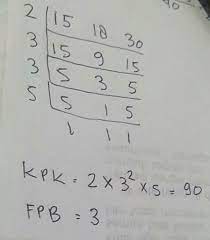 2 15 18 30
3 15 9 15
3 5 3 5
5 5 1 5
1 1 1
KPK = 2 x 3² x 5 = 90
FPB = 3